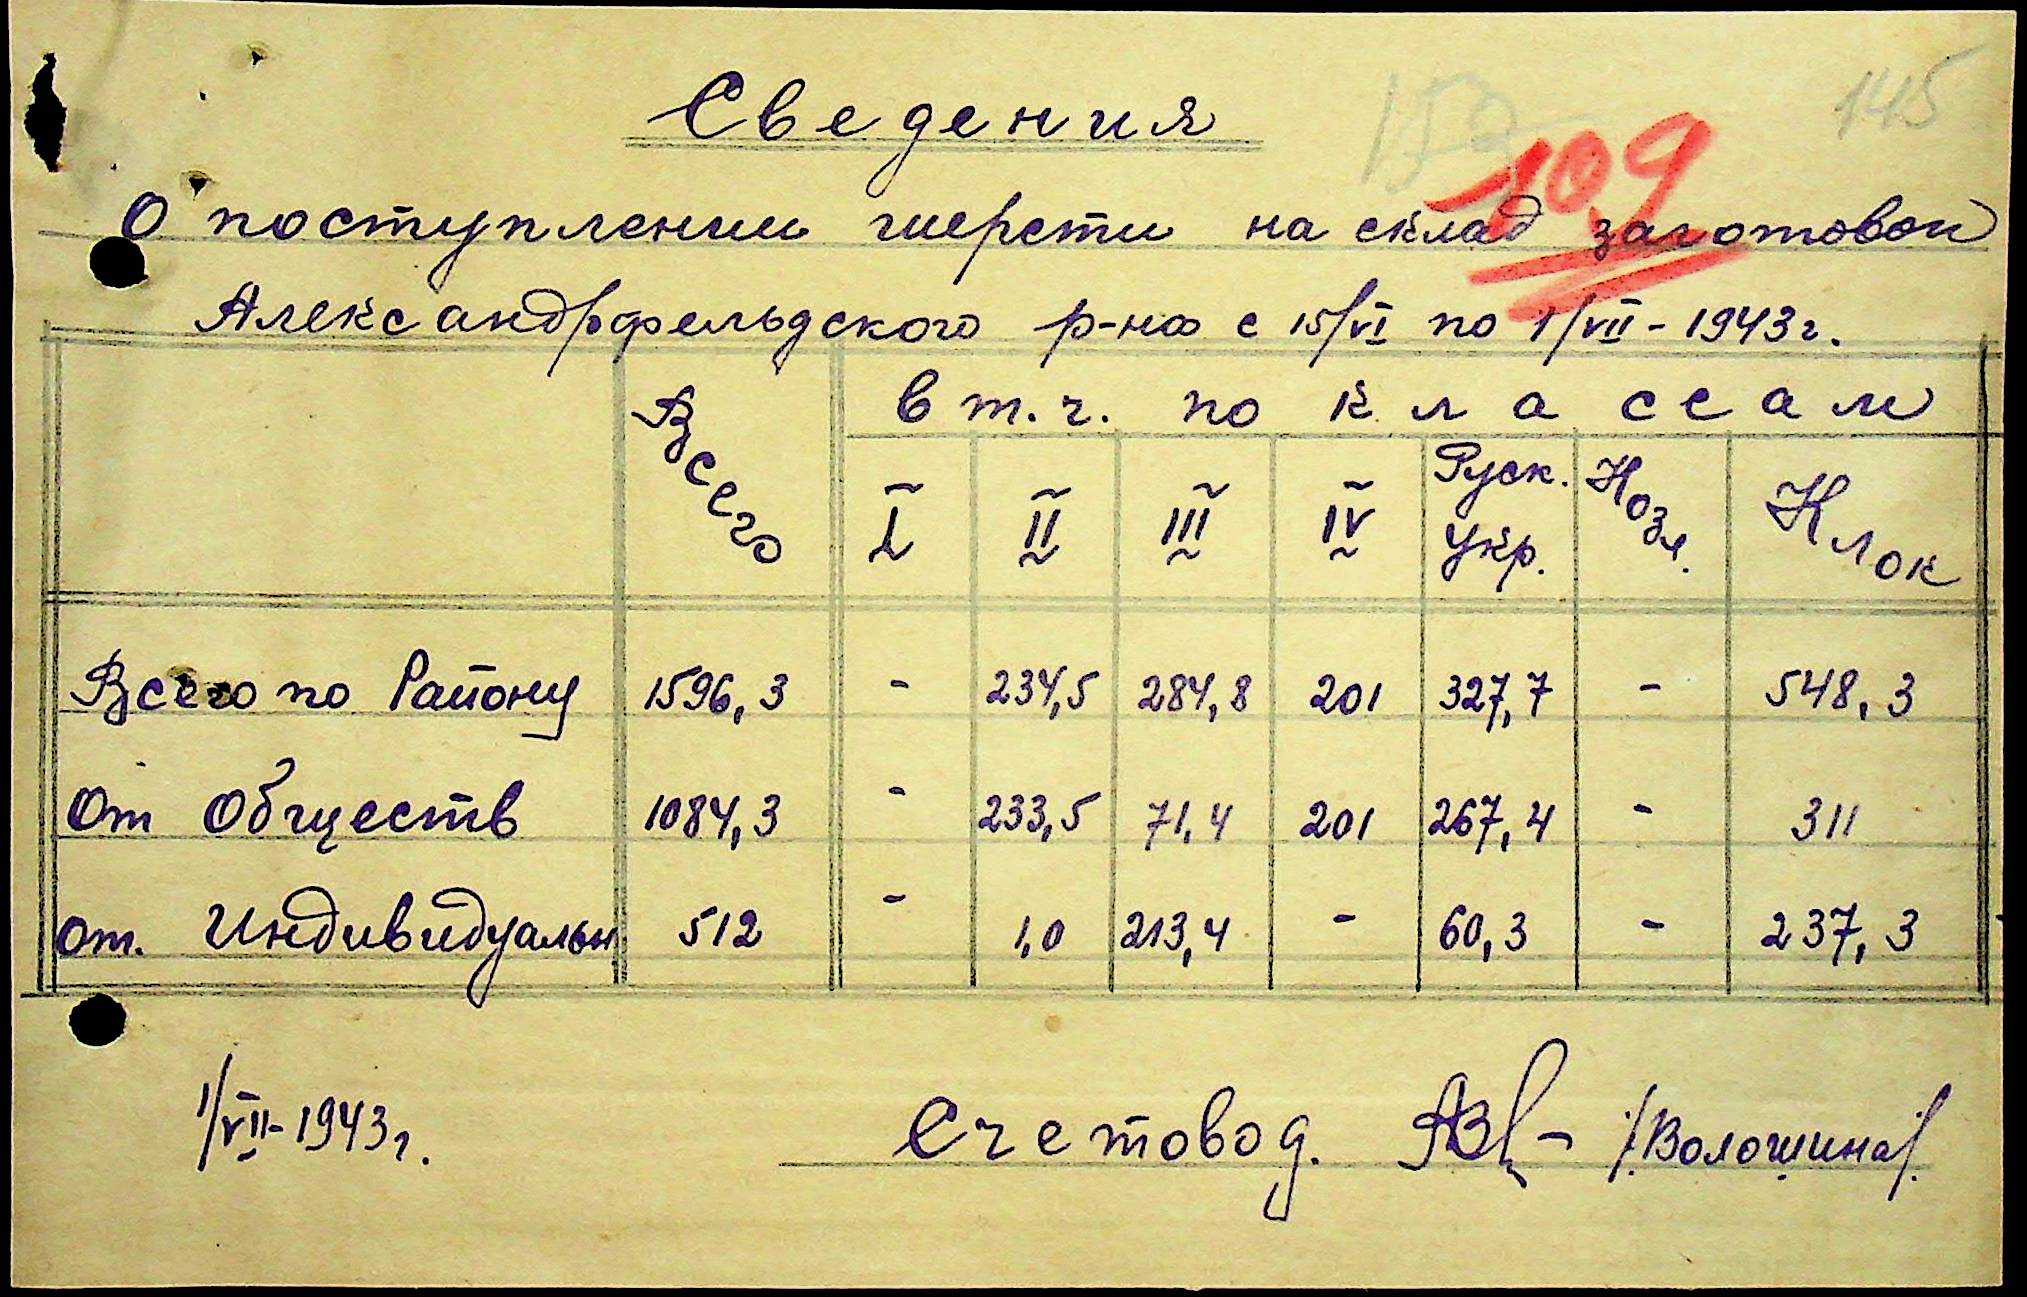 145
109
Сведения
О поступлении шерсти на склад заготовок
Александрфельдского р-на с 15/VI по 1/VII - 1943 г.
Всего в т.ч. по классам
I II III IV Руск. Укр. Козл. Клок
Всего по Району 1596,3 - 234,5 284,8 201 327,7 - 548,3
От Обществ 1084,3 - 233,5 71,4 201 267,4 - 311
от. Индивидуальн 512 - 1,0 213,4 - 60,3 - 237,3
1/VII - 1943 г. Счетовод. /Волошина/.